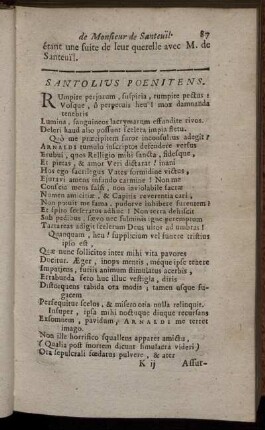 de Monsieur de Santeuil. 87
étant une suite de leur querelle avec M. de
Santeuil.
SANTOLIUS POENITENS.
RUmpite perjurum, suspiria, rumpite pectus:
Vosque, ô perpetuis heu! mox damnanda
tenebris
Lumina, sanguineos lacrymarum effundite rivos.
Deleri haud alio possunt scelera impia fletu.
Quò me præcipitem furor incondultus adegit?
ARNALDI tumulo inscriptos defendere versus
Erubui, quos Relligio mihi sancta, fidesque,
Et pietas, & amor Veri dictarat! inani
Hos ego sacrilegus Vates formidine victus,
Ejuravi amens infando carmine! Non me
Conscia mens falsi, non inviolabile sacræ
Nomen amicitiæ, & Capitis reverentia cari,
Non ponit me fama, pudorve inhibere furentem!
Et spiro sceleratus adhuc! Non terra dehiscit
Sub pedibus, sævo nec fulminis igne peremptum
Tartareas adigit scelerum Deus ultor ad umbras!
Quanquam, heu! supplicium vel funere tristius
ipso est,
Quæ nunc sollicitos inter mihi vita pavores
Ducitur. Æger, inops mentis, neque ipse
Impatiens, furiis animum stimulatus acerbis,
Errabunda fero huc illuc vestigia, diris
Distorquens tabida ora modis; tamen usque fu-
gacem
Persequitur scelus, & misero ora nulla relinquit.
Insuper, ipsa mihi noctuque diuque recursans
Exsomnem, pavidum, ARNALDI me terret
imago.
Non ille horrifico squallens apparet amictu,
(Qualia post mortem dicunt simulacra videri)
Ora sepulcrali fœdatus pulvere, & ater
K ij Assur-